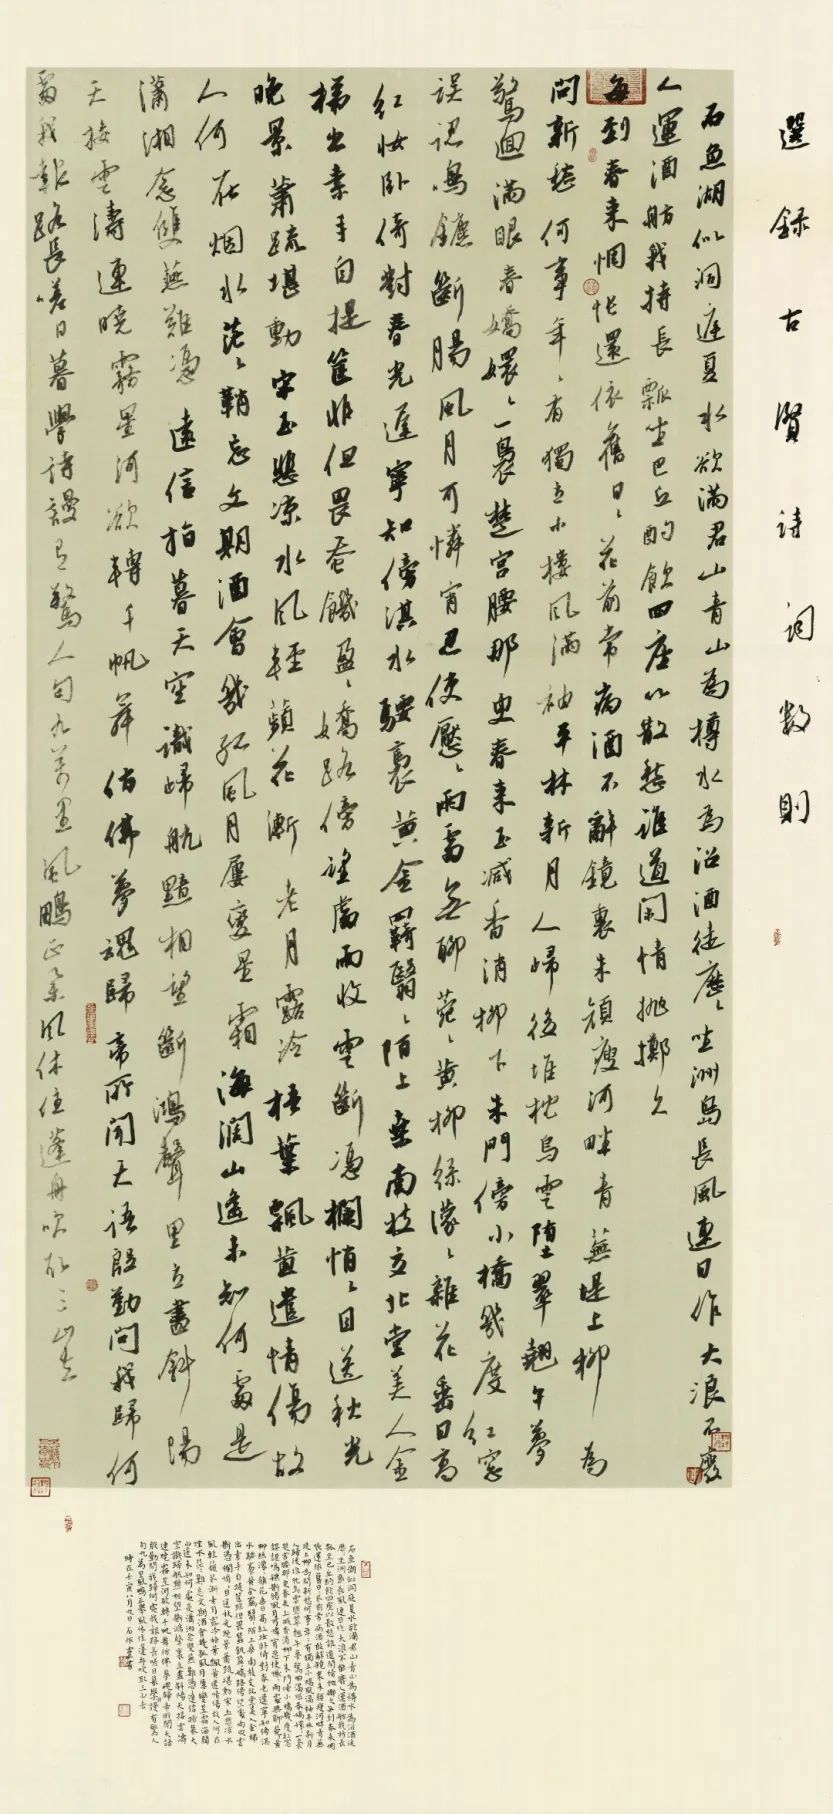 選録古賢诗词数則
石魚湖似洞庭夏水欲滿君山青山為樽水為沼酒徒歷〻坐洲島長風連日作大浪不廢
人運酒舫我持長瓢坐巴丘酌飲四座以散愁誰道閑情抛擲久
每到春来惆悵還依舊日〻花前常病酒不辭鏡裏朱顔瘦河畔青蕪堤上柳為
問新愁何事年〻有獨立小樓風滿袖平林新月人歸後堆枕烏雲墮翠翹午夢
驚迴滿眼春嬌嬛〻一裊楚宫腰那更春来玉减香消柳下朱門傍小橋幾度红窗
誤認鳴鑣斷腸風月可憐宵忍使懕〻兩處無聊苑〻黄柳絲濛〻雜花垂日高
红妆卧倚對春光遲寧知傍淇水騕裊黄金羈翳〻陌上桑南枝交北堂美人金
梯出素手自提筐非但畏蚕饑盈〻嬌路傍望處雨收雲斷憑欄悄〻目送秋光
晚景蕭疏堪動宋玉悲凉水風輕蘋花漸老月露冷梧葉飄黄遣情傷故
人何在烟水茫〻難忘文期酒會幾孤風月屢變星霜海阔山遥未知何處是
瀟湘念雙燕難憑遠信指暮天空識歸航黯相望斷鴻聲里立盡斜陽
天接雲濤連曉霧星河欲轉千帆舞仿佛夢魂歸帝所闻天語殷勤问我歸何
處我報路長嗟日暮學詩謾有驚人句九萬里風鵬正舉風休住蓬舟吹取三山去
石魚湖似洞庭夏水欲滿君山青山為樽水為沼酒徒
歷〻坐洲島長風連日作大浪不能廢人運酒舫我持長
瓢坐巴丘酌飲四座以散愁誰道閑情抛擲久每到春来惆
悵還依舊日〻花前常病酒不辭鏡裏朱顔瘦河畔青蕪
堤上柳為問新愁何事年〻有獨立小樓風滿袖平林新月
人歸後堆枕烏雲墮翠翹午夢驚迴滿眼春嬌嬛〻一裊
楚宫腰那更春来玉减香消柳下朱門傍小橋幾度红窗
誤認鳴鑣斷腸風月可憐宵忍使懕〻兩處無聊苑〻黄
柳絲濛〻雜花垂日高红妆卧倚對春光遲寧知傍淇
水騕裊黄金羈翳〻陌上桑南枝交北堂美人金梯
出素手自提筐非但畏蚕饑盈〻嬌路傍望處雨收雲
斷憑欄悄〻目送秋光晚景蕭疏堪動宋玉悲凉水
風輕蘋花漸老月露冷梧葉飄黄遣情傷故人何在
烟水茫〻難忘文期酒會幾孤風月屢變星霜海闊
山遥未知何處是瀟湘念雙燕難憑遠信指暮天
空識歸航黯相望斷鴻聲里立盡斜陽天接雲濤
連曉霧星河欲轉千帆舞仿佛夢魂歸帝所聞天語
殷勤問我歸何處我報路長嗟日暮學詩謾有驚人
句九萬里風鵬正舉風休住蓬舟吹取三山去
時在壬寅